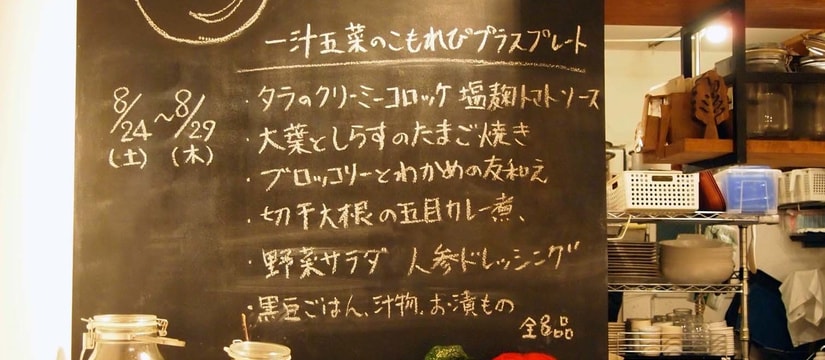 一汁五菜のこもれびプラスプレート
8/24〜8/29
(土) (木)
・タラのクリーミーコロッケ 塩麹トマトソース
・大葉としらすのたまご焼き
・ブロッコリーとわかめの友和え
・切干大根の五目カレー煮、
・野菜サラダ 人参ドレッシング
・黒豆ごはん、汁物、お漬もの
全8品